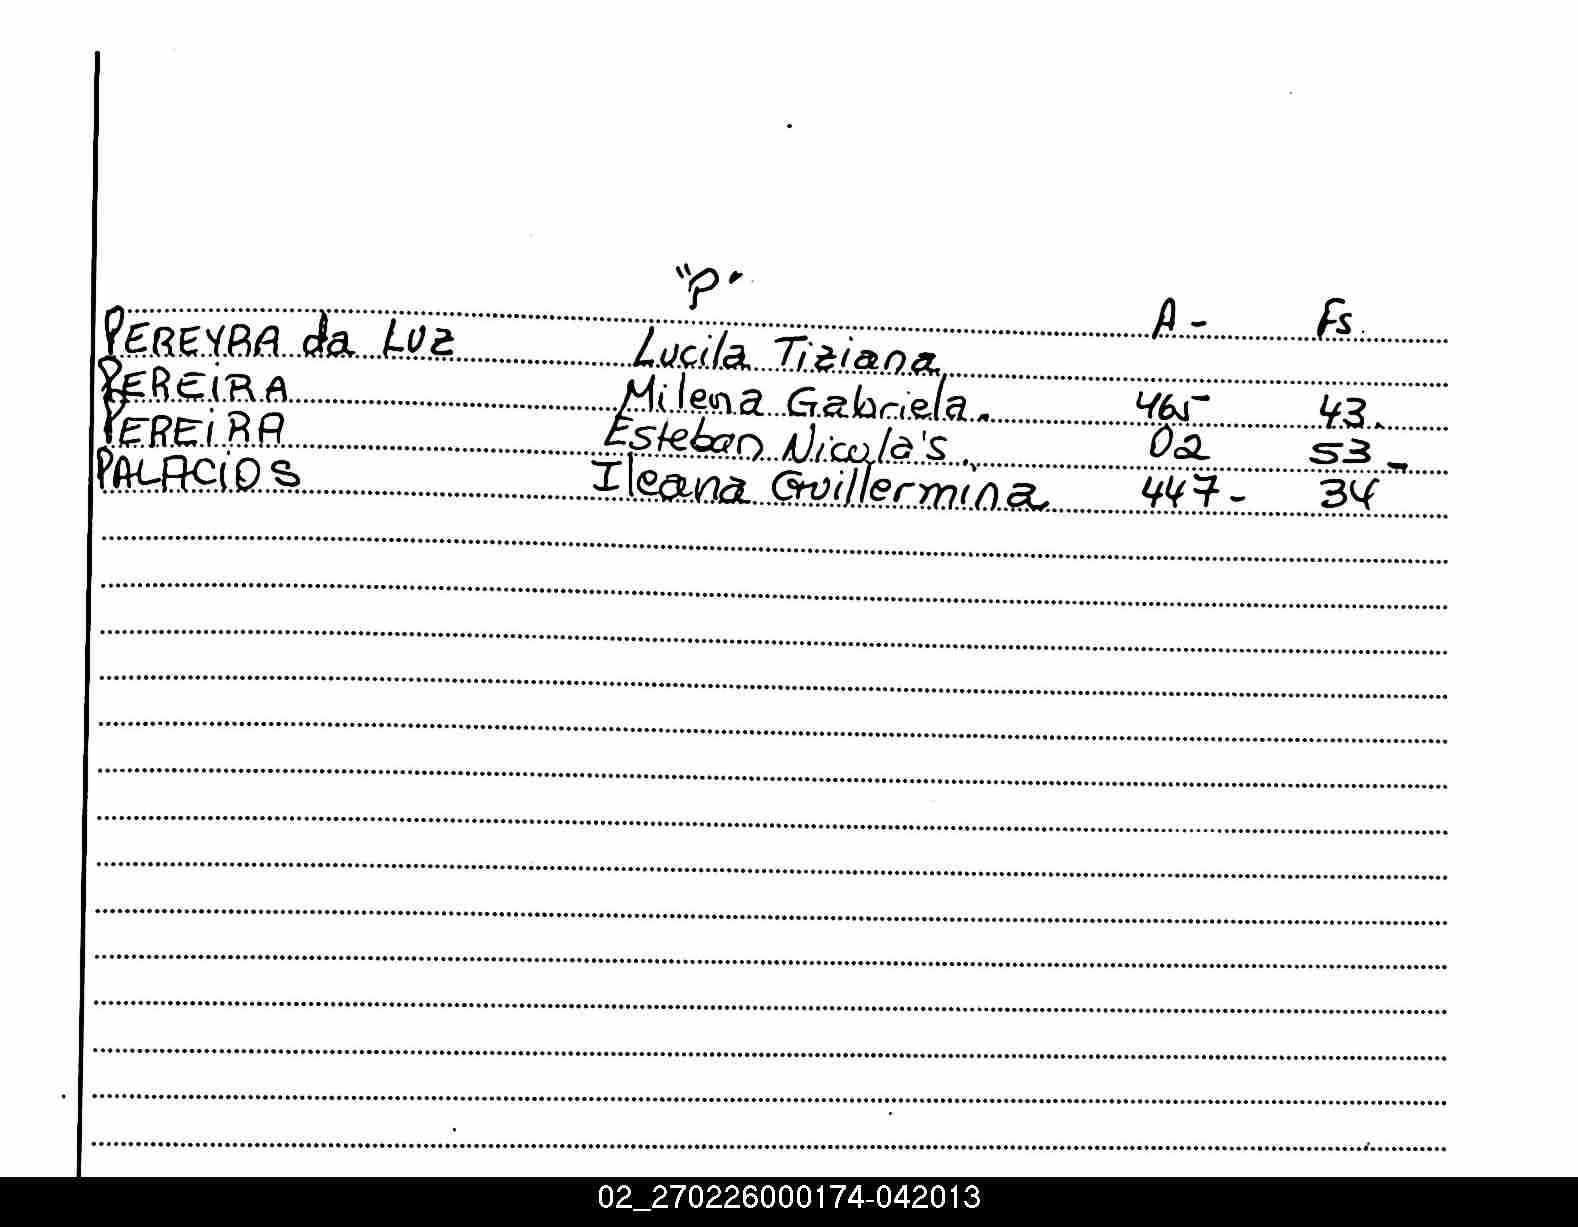 "P"
A - Fs.
PEREYRA da Luz Lucila Tiziana
PEREiRA Milena Gabriela. 465- 43.
PEREiRA Esteban Nicolás. 02 53-
PALACiOS Ileana Guillermina 447- 34
02_270226000174-042013